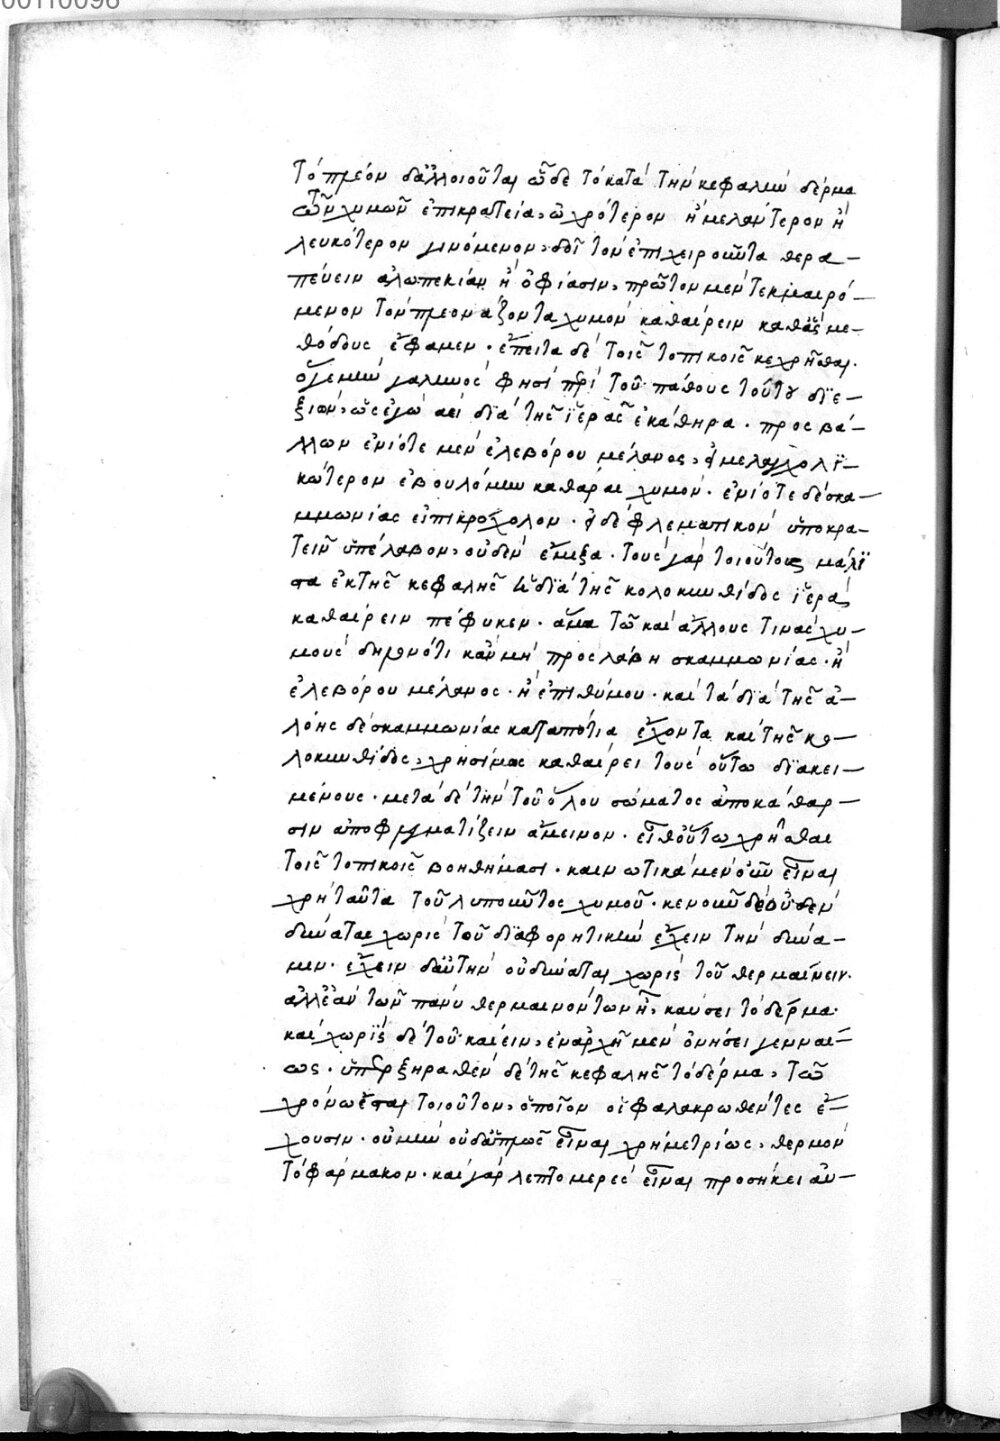 00110096
τὸ πλέον δἀλλοιοῦται ὧδε τὸ κατὰ τὴν κεφαλὴν δέρμα
τῶν χυμῶν ἐπικρατεία, ὠχρότερον ἢ μελανότερον ἢ
λευκότερον γινόμενον, δεῖ τὸν ἐπιχειροῦντα θερα–
πεύειν ἀλωπεκίαν ἢ ὀφίασιν, πρῶτον μὲν τεκμαιρό–
μενον τὸν πλεονάζοντα χυμὸν καθαίρειν καθἃς με–
θόδους ἔφαμεν. ἔπειτα δὲ τοῖς τοπικοῖς κεχρῆσθαι.
ὅγε μὴν γαληνὸς φησὶ περὶ τοῦ πάθους τούτου διε–
ξιὼν, ὡς ἐγὼ ἀεὶ διὰ τῆς ἱερᾶς ἐκάθηρα. προσβά–
λλων ἐνίοτε μὲν ἐλεβόρου μέλανος, εἰ μελαγχολι–
κώτερον ἐβουλόμην καθάραι χυμόν. ἐνίοτε δὲ σκα–
μμωνίας εἰ πικρόχολον. εἰ δὲ φλεγματικὸν ὑποκρα–
τεῖν ὑπέλαβον, οὐδὲν ἔμιξα. τοὺς γὰρ τοιούτους μάλι
στα ἐκ τῆς κεφαλῆς ἡ διὰ τῆς κολοκυνθίδος ἱερὰ
καθαίρειν πέφυκεν. ἅμα τῶ καὶ ἄλλους τινας χυ–
μοὺς δηλονότι κἂν μὴ προσλάβη σκαμμωνίας. ἢ
ἐλεβόρου μέλανος. ἢ ἐπιθύμου. καὶ τὰ διὰ τῆς ἀ–
λόης δὲ σκαμμωνίας καταπότια ἔχοντα καὶ τῆς κο–
λοκυνθίδος, χρησίμως καθαίρει τοὺς οὕτω διακει–
μένους. μετὰ δὲ τὴν τοῦ ὅλου σώματος ἀποκάθαρ–
σιν ἀποφλεγματίζειν ἄμεινον. εἶθ οὕτω χρῆσθαι
τοῖς τοπικοῖς βοηθήμασι. κενωτικὰ μὲν οὖν εἶναι
χρὴ ταῦτα τοῦ λυποῦντος χυμοῦ. κενοῦν δὲ οὐδὲν
δύναται χωρὶς τοῦ διαφορητικὴν ἔχειν τὴν δύνα–
μιν. ἔχειν δαὐτὴν οὐ δύναται χωρὶς τοῦ θερμαίνειν.
ἀλλ ἐὰν τῶν πάνυ θερμαινόντων ἦ, καύσει τὸ δέρμα.
καὶ χωρὶς δὲ τοῦ καίειν, ἐν ἀρχῆ μὲν ὀνήσει γενναί–
ως. ὑπερξηρανθὲν δὲ τῆς κεφαλῆς τὸ δέρμα, τῶ
χρόνω ἔσται τοιοῦτον, ὁποῖον οἱ φαλακρωθέντες ἔ–
χουσιν. οὐ μὴν οὐδἁπλῶς εἶναι χρὴ μετρίως, θερμὸν
τὸ φάρμακον. καὶ γὰρ λεπτομερὲς εἶναι προσήκει αὐ–